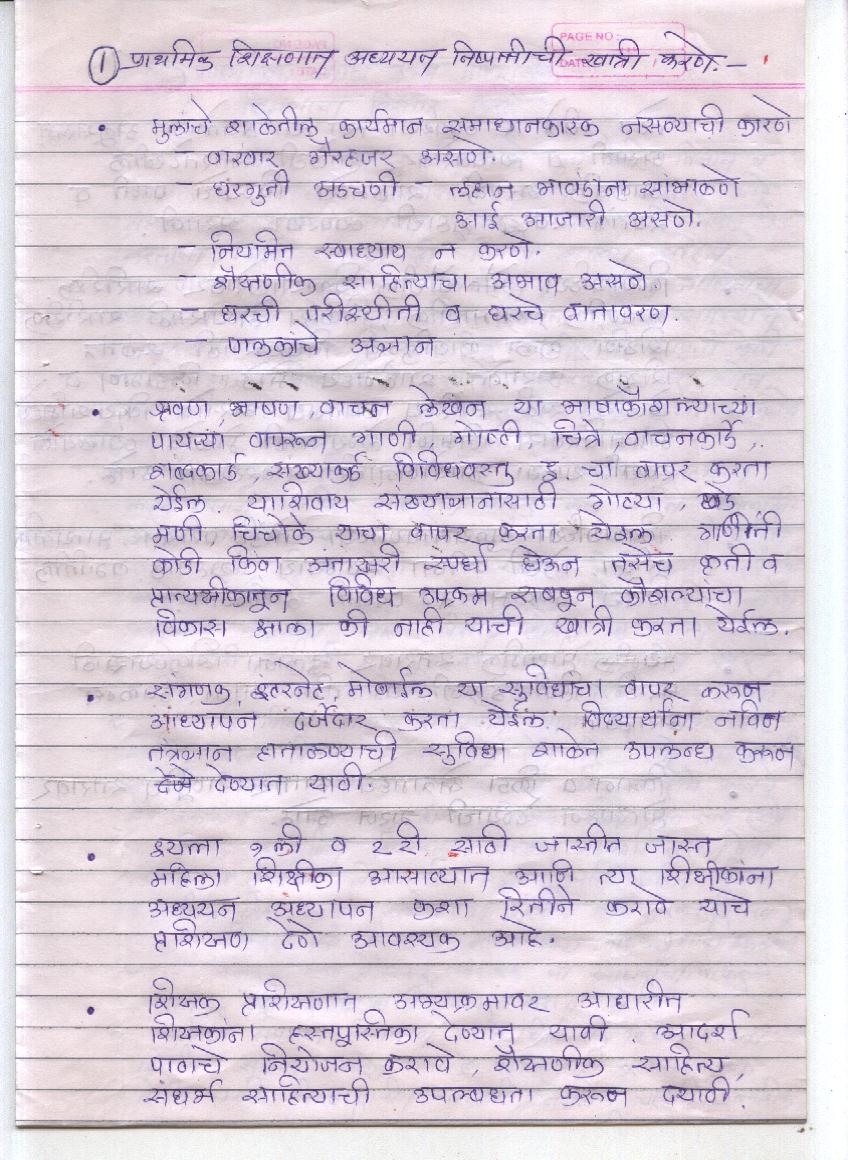 PAGE NO.
DATE
① प्राथमिक शिक्षणात अध्ययन निष्पत्तीची खात्री करणे. –
• मुलांचे शाळेतील कार्यमान समाधानकारक नसण्याची कारणे
वारंवार गैरहजर असणे.
– घरगुती अडचणी – लहान भावंडांना सांभाळणे
आई आजारी असणे.
– नियमित स्वाध्याय न करणे.
– शैक्षणीक साहित्याचा अभाव असणे.
– घरची परीस्थीती व घरचे वातावरण.
– पालकांचे अज्ञान
• श्रवण, भाषण, वाचन लेखन या भाषाकौशल्याच्या
पायऱ्या वापरून गाणी, गोष्टी, चित्रे, वाचनकार्ड,
शब्दकार्ड, संख्याकार्ड विविधवस्तु इ. चा वापर करता
येईल. याशिवाय संख्याज्ञानासाठी गोट्या, खडे
मणी, चिंचोके याचा वापर करता येईल. गाणीती
कोडी किंवा अंताक्षरी स्पर्धा घेऊन तसेच कृती व
प्रात्यक्षीकातून विविध उपक्रम राबवून कौशल्यांचा
विकास झाला की नाही याची खात्री करता येईल.
• संगणक, इंटरनेट, मोबाईल या सुविधांचा वापर करून
अध्यापन दर्जेदार करता येईल. विद्यार्थांना नविन
तंत्रज्ञान हाताळण्याची सुविधा शाळेत उपलब्ध करून
देण्यात यावी.
• इयत्ता १ली व 2री साठी जास्तीत जास्त
महिला शिक्षीका असाव्यात आणि त्या शिक्षीकांना
अध्ययन अध्यापन कशा रितीने करावे याचे
प्रशिक्षण देणे आवश्यक आहे.
• शिक्षक प्रशिक्षणात अभ्याक्रमावर आधारीत
शिक्षकांना हस्तपुस्तिका देण्यात यावी. आदर्श
पाठाचे नियोजन करावे, शैक्षणीक साहित्य,
संधर्भ साहित्याची उपलब्धता करून दयावी.